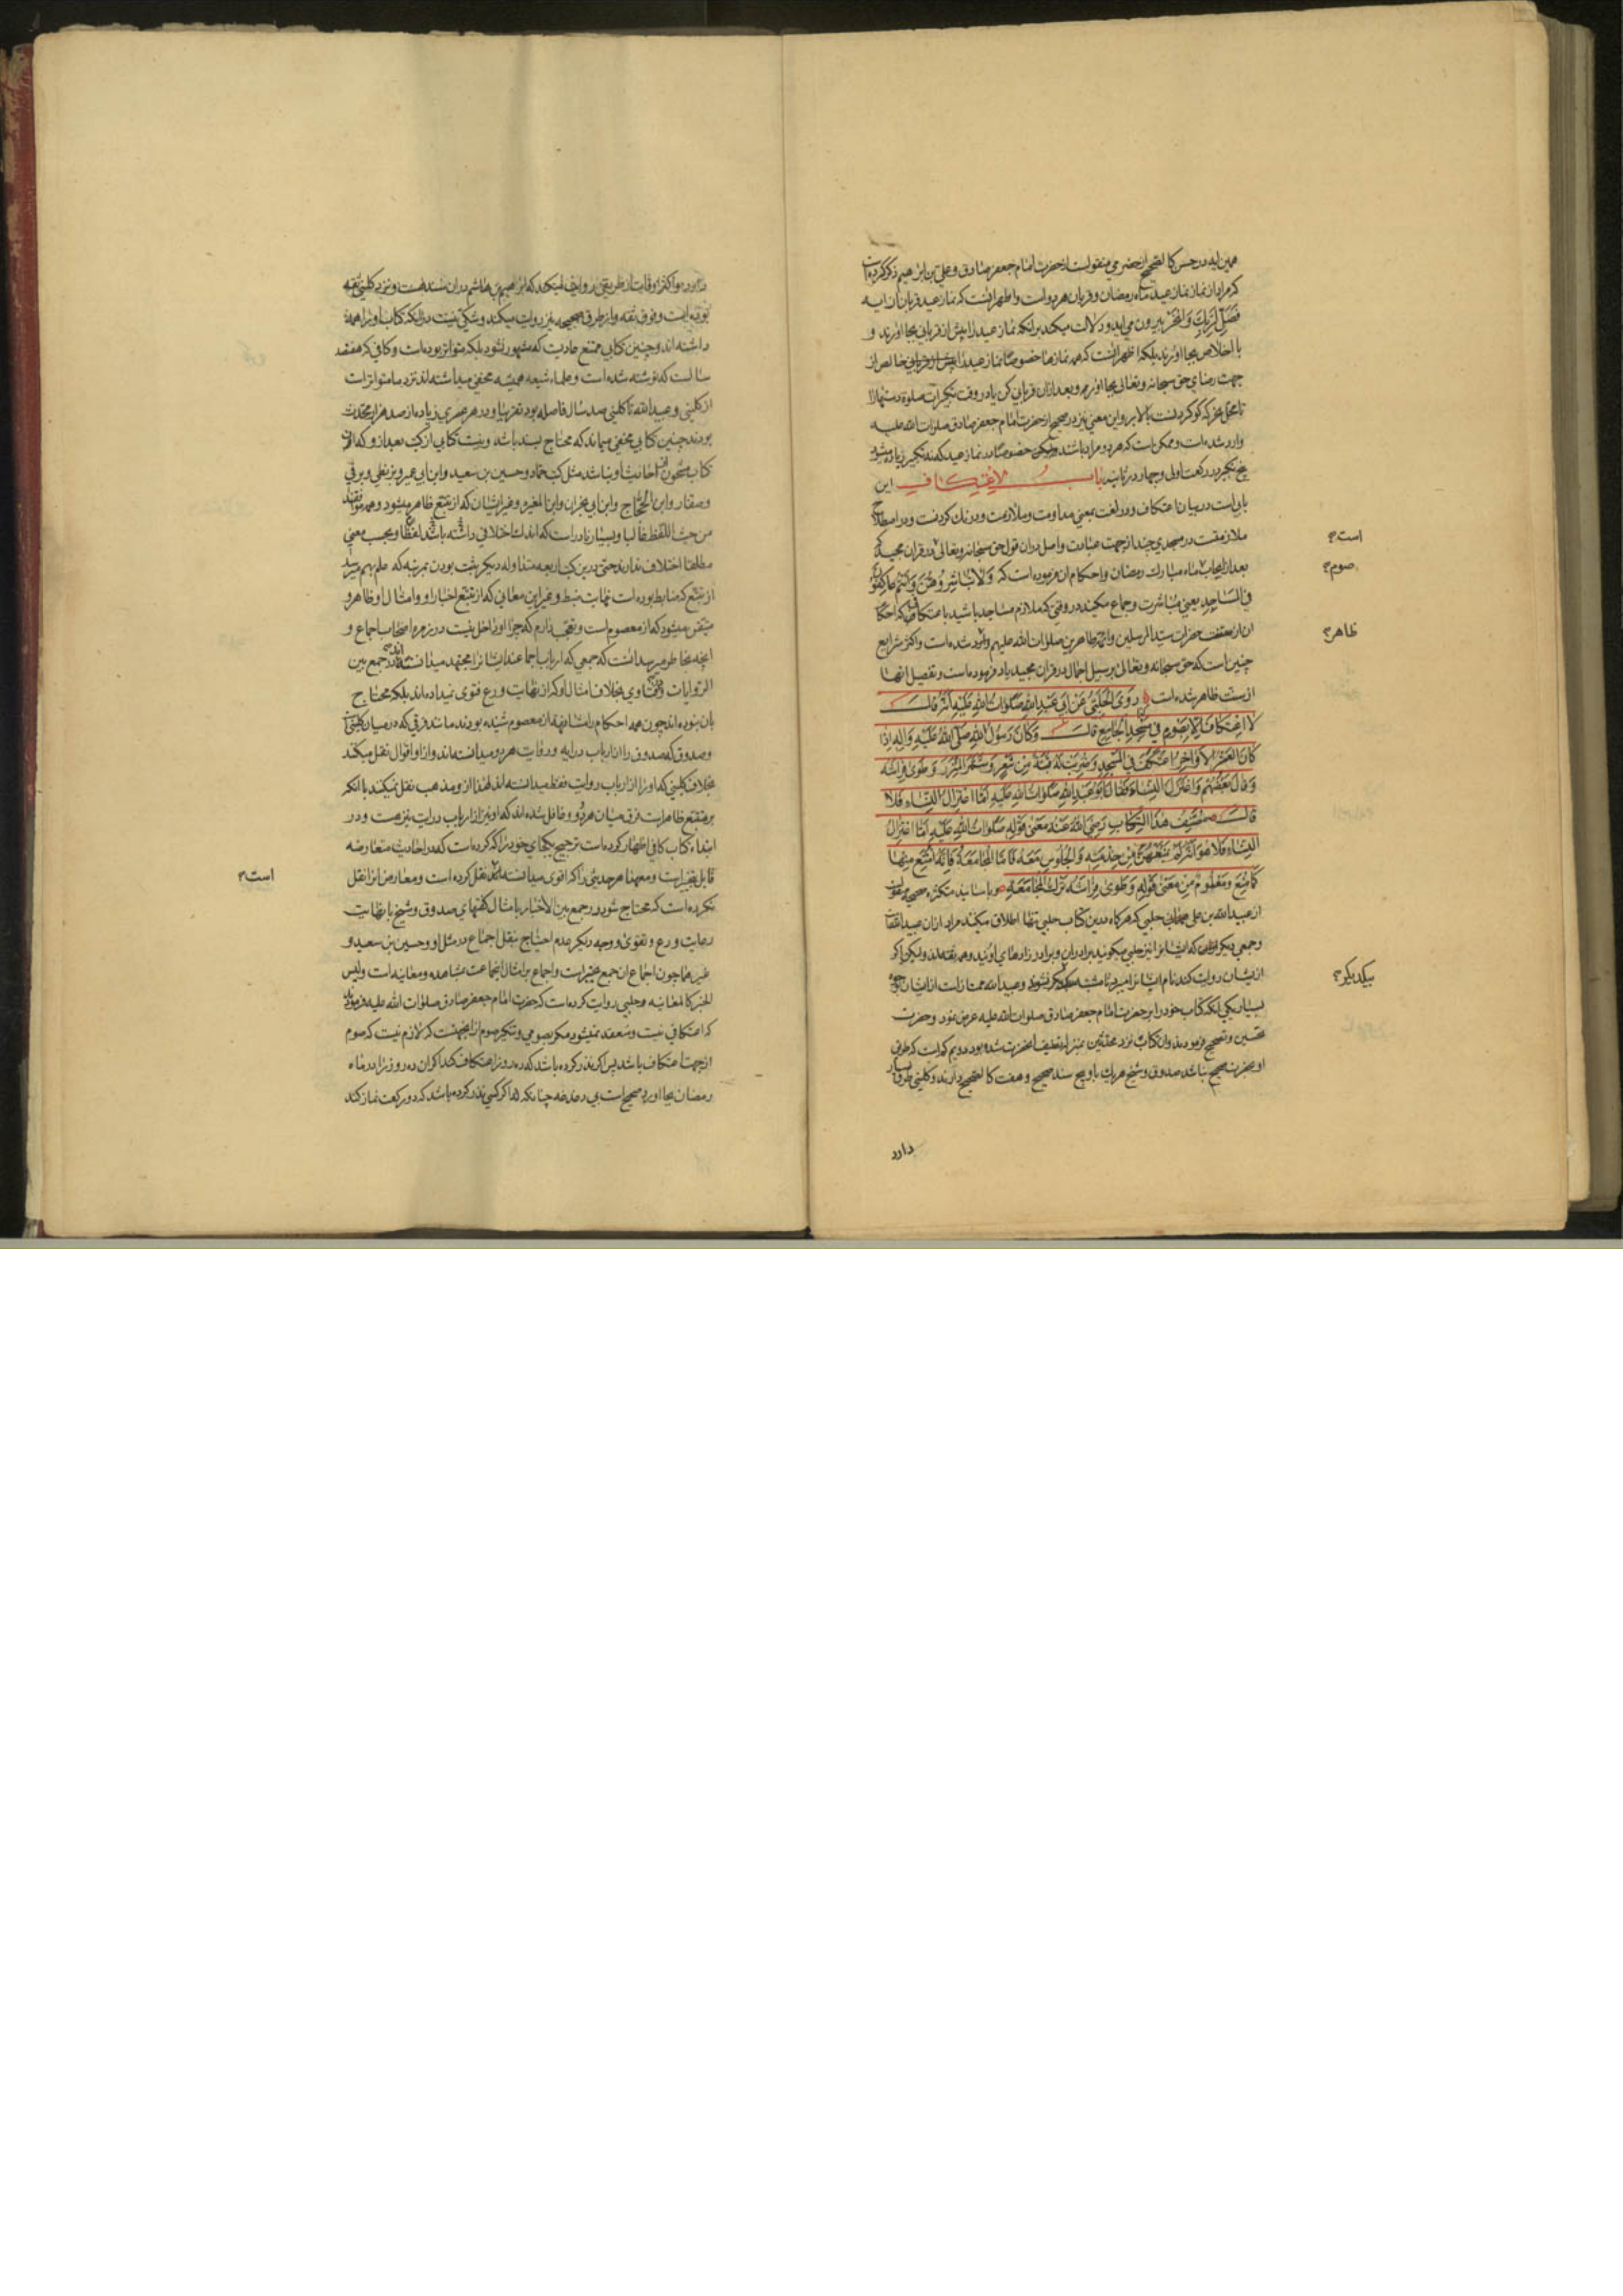 همین آیه در حسن کالصحیح از حضرمی منقولست از حضرت امام جعفر صادق و علی بن ابرهیم ذکر کرده است
که مراد از نماز نماز عید ماه رمضان و قربان هر دو است و اظهر آنست که نماز عید قربان از آیه
فَصَلِّ لِرَبِّكَ وَانْحَرْ بیرون می آید و دلالت میکند بر آنکه نماز عید را پیش از قربانی بجا آورند و
با اخلاص بجا آورند بلکه اظهر آنست که همه نمازها خصوصا نماز عید را خالص از
جهت رضای حق سبحانه و تعالی بجا آورم و بعد از آن قربانی کن یا در وقت تکبیرات صلوة دستها را
تا محل نحر که گو کردنست بالا بر و این معنی نیز در صحیح از حضرت امام جعفر صادق صلوات الله علیه
وارد شده است و ممکن است که هر دو مراد باشد ولیکن خصوصا در نماز عید که نه تکبیر زیاده میشود
پنج تکبیر در رکعت اولی و چهار در ثانیه باب الاعتکاف این
بابی است در بیان اعتکاف و در لغت بمعنی مداومت و ملازمت و درنك کردنست و در اصطلاح
ملازمتست در مسجدی چند از جهت عبادت و اصل در آن قول حق سبحانه و تعالی در قرآن مجید که
بعد از ایجاب ماه مبارك رمضان و احکام آن فرموده است که وَلا تُباشِرُوهُنَّ وَأَنْتُمْ عاکِفُونَ
فِی المَساجِدِ یعنی مباشرت و جماع مکنید در وقتی که ملازم مساجد باشید با اعتکافی که احکام
آن از حضرات سید المرسلین و ائمه طاهرین صلوات الله علیهم وارد شده است و اکثر شرایع
چنین است که حق سبحانه و تعالی بر سبیل اجمال در قرآن مجید یاد فرموده است و تفصیل آنها
از سنت ظاهر شده است رَوَی الحَلَبِیُّ عَنْ أَبِی عَبْدِاللهِ صَلَواتُ اللهِ عَلَیْهِ أَنَّهُ قالَ
لا اعْتِکافَ إِلّا بِصَوْمٍ فِی مَسْجِدِ الجامِعِ قالَ وَکانَ رَسُولُ اللهِ صَلَّی اللهُ عَلَیْهِ وَآلِهِ إِذا
کانَ العَشْرُ الأَواخِرُ اعْتَکَفَ فِی المَسْجِدِ وَضُرِبَتْ لَهُ قُبَّةٌ مِنْ شَعْرٍ وَشَمَّرَ المِئْزَرَ وَطَوی فِراشَهُ
وَقالَ بَعْضُهُمْ وَاعْتَزَلَ النِّساءَ فَقالَ أَبُو عَبْدِاللهِ صَلَواتُ اللهِ عَلَیْهِ أَمَّا اعْتِزالُ النِّساءِ فَلا
قالَ مُصَنِّفُ هذَا الکِتابِ رَضِیَ اللهُ عَنْهُ مَعْنی قَوْلِهِ صَلَواتُ اللهِ عَلَیْهِ أَمَّا اعْتِزالُ
النِّساءِ فَلا هُوَ أَنَّهُ لَمْ یَمْنَعْهُنَّ مِنْ خِدْمَتِهِ وَالجُلُوسِ مَعَهُ فَأَمَّا المُجامَعَةُ فَإِنَّهُ امْتَنَعَ مِنْها
کَما مُنِعَ وَمَعْلُومٌ مِنْ مَعْنی قَوْلِهِ وَطَوی فِراشَهُ تَرْكُ المُجامَعَةِ و باسانید متکثره صحیحه منقولست
از عبیدالله بن علی حلبی که هرگاه درین کتاب حلبی تنها اطلاق میکنند مراد از آن عبیدالله است
و جمعی دیگر که ایشانرا نیز حلبی میگویند برادران و برادر زادهای اویند و همه ثقه اند ولیکن اگر
از ایشان روایت کند نام ایشانرا میبرد تا مشتبه نشوند و عبیدالله ممتاز است از ایشان بوجوه
بسیار یکی آنکه کتاب خود را بر حضرت امام جعفر صادق صلوات الله علیه عرض نمود و حضرت
تحسین و تصحیح فرمودند و آن کتاب نزد محدثین بمنزله تصنیف آنحضرت شده بود دویم کم است که طرق
او بخبر صحیح نباشد صدوق و شیخ هر یك با و پنج سند صحیح و هفت کالصحیح دارند و کلینی طرق بسیار
دارد
است
صوم
ظاهر
یکدیگر
دارد و اکثر اوقات از طریقی روایت میکند که ابرهیم بن هاشم در آن سند هست و نزد کلینی ثقه
بوده است و فوق ثقه و از طرق صحیحه نیز روایت میکند و شکی نیست در آنکه کتاب او را همه
داشته اند و چنین کتابی ممتنع عادیست که مشهور نشود بلکه متواتر بوده است و کافی که هفتصد
سالست که نوشته شده است و علماء شیعه همیشه مخفی میداشته اند نزد ما متواتر است
از کلینی و عبیدالله تا کلینی صد سال فاصله بود تقریبا و در هر عصری زیاده از صد هزار محدث
بودند چنین کتابی مخفی میماند که محتاج بسند باشد و نیست کتابی از کتب بعد از و که از آن
کتاب مشحون از احادیث او نباشد مثل کتب حماد و حسین بن سعید و ابن ابی عمیر و بزنطی و برقی
و صفار و ابن الحجاج و ابن ابی نجران و ابن المغیره و غیر ایشان که از تتبع ظاهر میشود و همه موافقند
من حیث اللفظ غالبا و بسیار نادر است که اندك اختلافی داشته باشد لفظا و بحسب معنی
مطلقا اختلاف ندارند حتی درین کتب اربعه متداوله دیگر ثبت بودن بمرتبه که علم بهم میرسد
از تتبع که ضابط بوده است نهایت ضبط و غیر این معانی که از تتبع اخبار او و امثال او ظاهر و
متیقن میشود که از معصوم است و تعجب دارم که چرا او را داخل نیست در زمره اصحاب اجماع و
آنچه بخاطر میرسد آنست که جمعی که ارباب اجماعند ایشانرا مجتهد میدانسته اند در جمع بین
الروایات و فتاوی بخلاف امثال او که از نهایت ورع فتوی نمیداده اند بلکه محتاج
بان نبوده اند چون همه احکام را مشافهة از معصوم شنیده بودند مانند فرقی که در میان کلینی است
و صدوق که صدوق را از ارباب درایه و روایت هر دو میدانسته اند و ازو اقوال نقل میکند
بخلاف کلینی که او را از ارباب روایت فقط میدانسته اند لهذا ازو مذهب نقل نمیکنند با آنکه
بر متتبع ظاهر است فرق میان هر دو و غافل شده اند که او نیز از ارباب درایت نیز هست و در
ابتداء کتاب کافی اظهار کرده است ترجیح یکجای خود را که کرده است که در احادیث متعارضه
قابل تخییر است و معهذا هر حدیثی را که اقوی میدانسته نقل کرده است و معارض آنرا نقل
نکرده است که محتاج شود در جمع بین الاخبار بامثال گفتهای صدوق و شیخ با نهایت
رعایت ورع و تقوی و وجه دیگر عدم احتیاج بنقل اجماع در مثل او و حسین بن سعید و
غیرهما چون اجماع آن جمع غیر است و اجماع بر امثال این جماعت مشاهده و معاینه است و لیس
الخبر کالمعاینه و حلبی روایت کرده است که حضرت امام جعفر صادق صلوات الله علیه فرمودند
که اعتکافی نیست و منعقد نمیشود مگر بصومی و تنکیر صوم از آنجهتست که لازم نیست که صوم
از جهت اعتکاف باشد پس اگر نذر کرده باشد که ده روز اعتکاف کند اگر آن ده روز را در ماه
رمضان بجا آورد صحیح است بی دغدغه چنانکه اگر کسی نذر کرده باشد که دو رکعت نماز کند
است